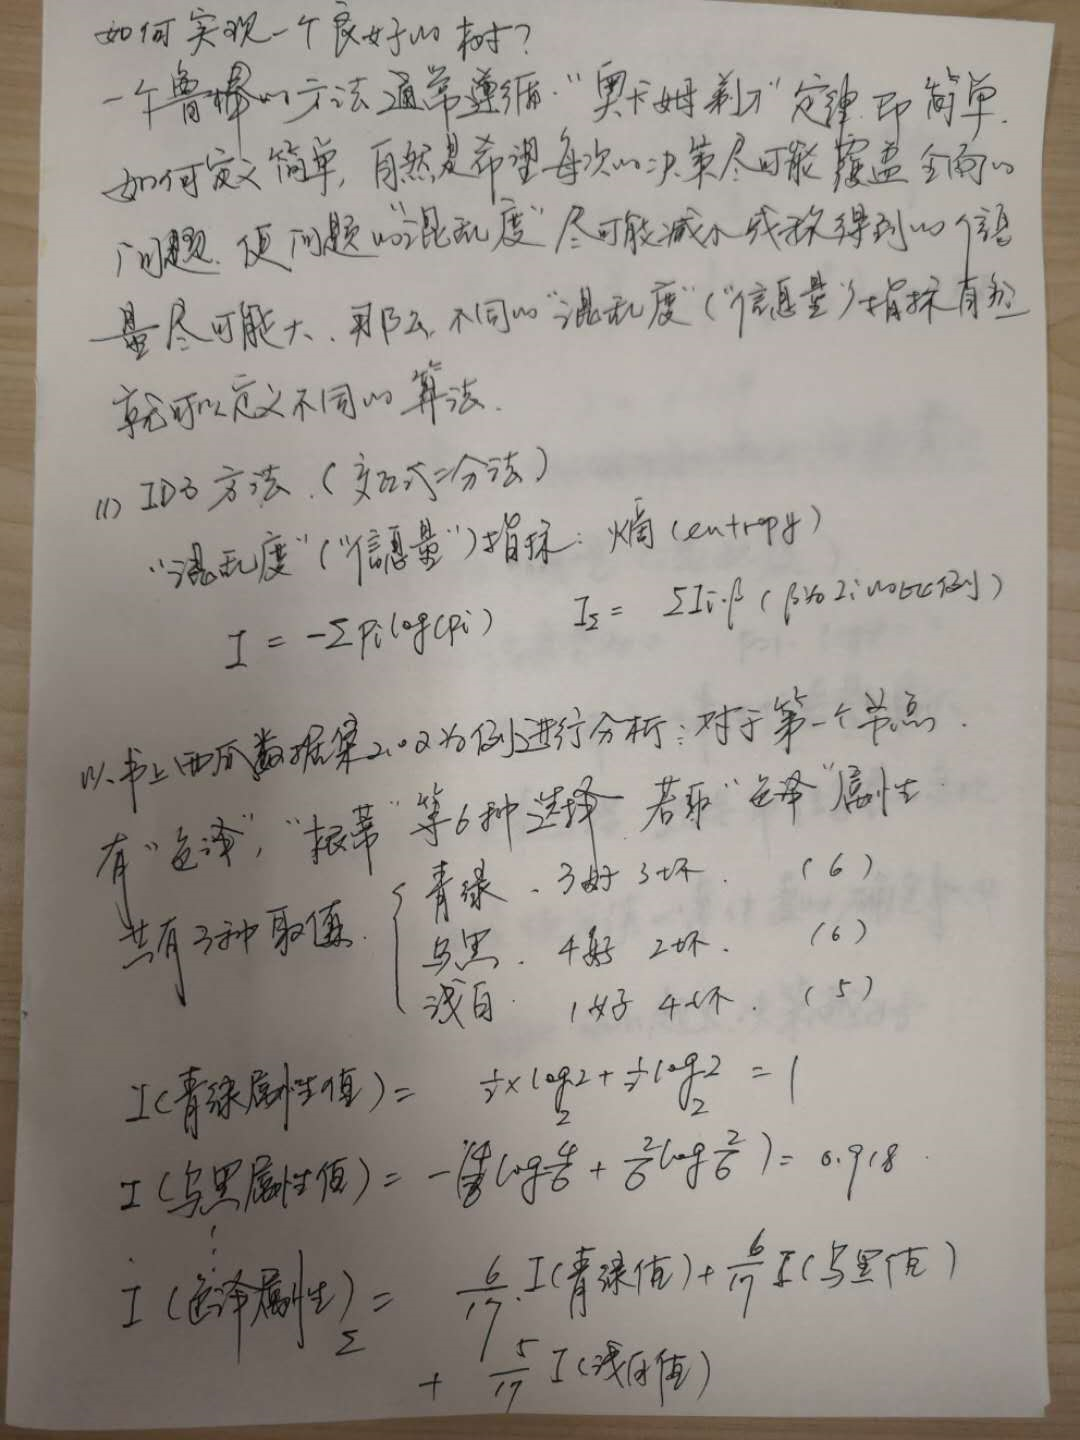 如何实现一个良好的树?
一个鲁棒的方法通常遵循“奥卡姆剃刀”定律即简单.
如何定义简单,自然是希望每次的决策尽可能覆盖全面的
问题.使问题的“混乱度”尽可能减小或称得到的信息
量尽可能大、那么不同的“混乱度”(“信息量”)指标
就可以定义不同的算法.
(1) ID3方法.(交互式二分法)
“混乱度”(“信息量”)指标: 熵(entropy)
I = -Σpilog(pi) IΣ = ΣIi·β (β为Ii的比例)
以书上西瓜数据集2.0为例进行分析:对于第一个节点.
有“色泽”,“根蒂”等6种选择 若取“色泽”属性.
共有3种取值. { 青绿. 3好 3坏. (6)
乌黑. 4好 2坏. (6)
浅白. 1好 4坏. (5)
I(青绿属性值) = ½×log₂2+½log₂2 = 1
I(乌黑属性值) = -(4/6log4/6 + 2/6log2/6) = 0.918.
⋮
I(色泽属性)Σ = 6/17·I(青绿值)+6/17 I(乌黑值)
+ 5/17 I(浅白值)